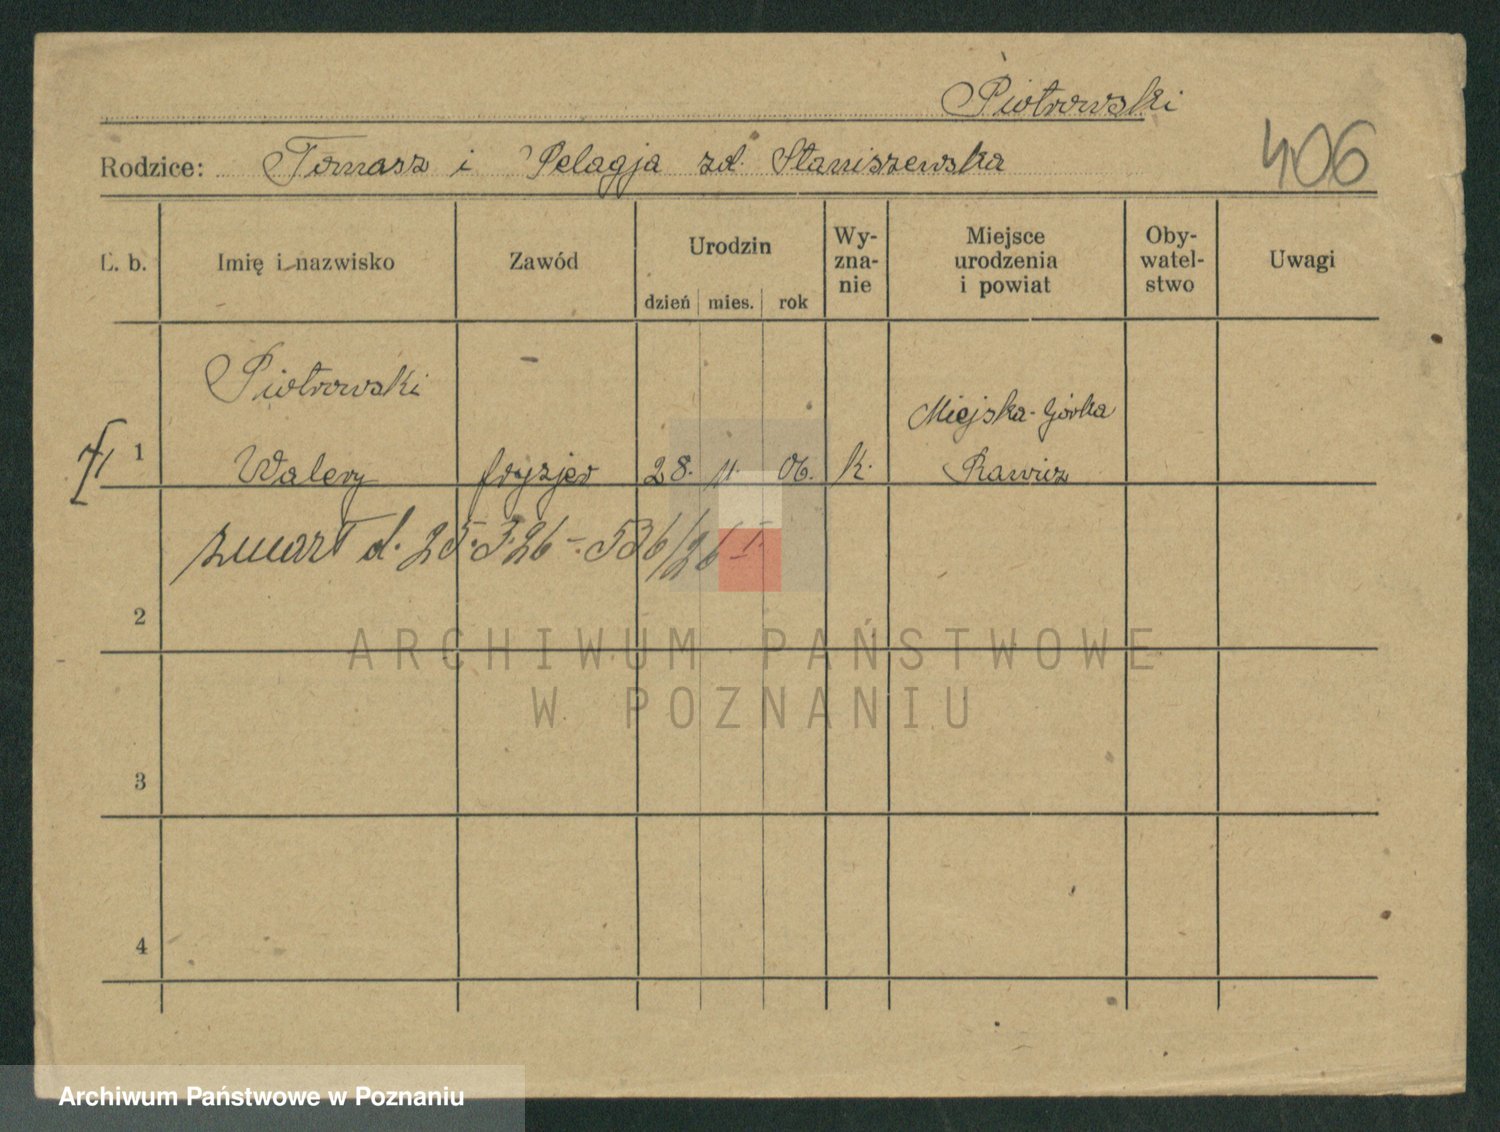 Piotrowski
Rodzice: Tomasz i Pelagja zd. Staniszewska
406
L. b. Imię i nazwisko Zawód Urodzin dzień mies. rok Wy-zna-nie Miejsce urodzenia i powiat Oby-watel-stwo Uwagi
Piotrowski
Miejska-Górka
1 Walery fryzjer 28. 11. 06. k. Rawicz
zmarł d. 25.3.26 - 536/26 I.
2
ARCHIWUM PAŃSTWOWE
W POZNANIU
3
4
Archiwum Państwowe w Poznaniu